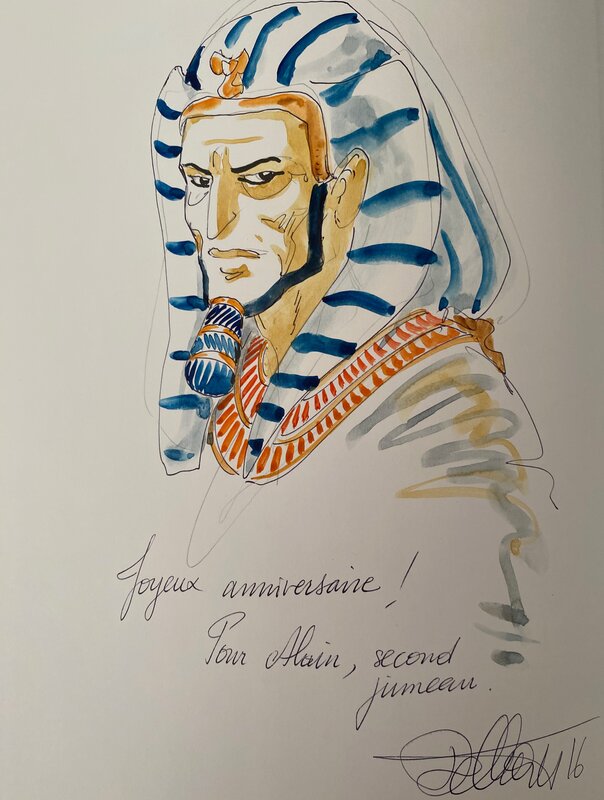 Joyeux anniversaire !
Pour Alain, second
jumeau.
16